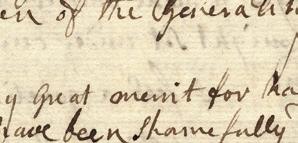 en of the General
y Great merit for ha
have been Shamefully